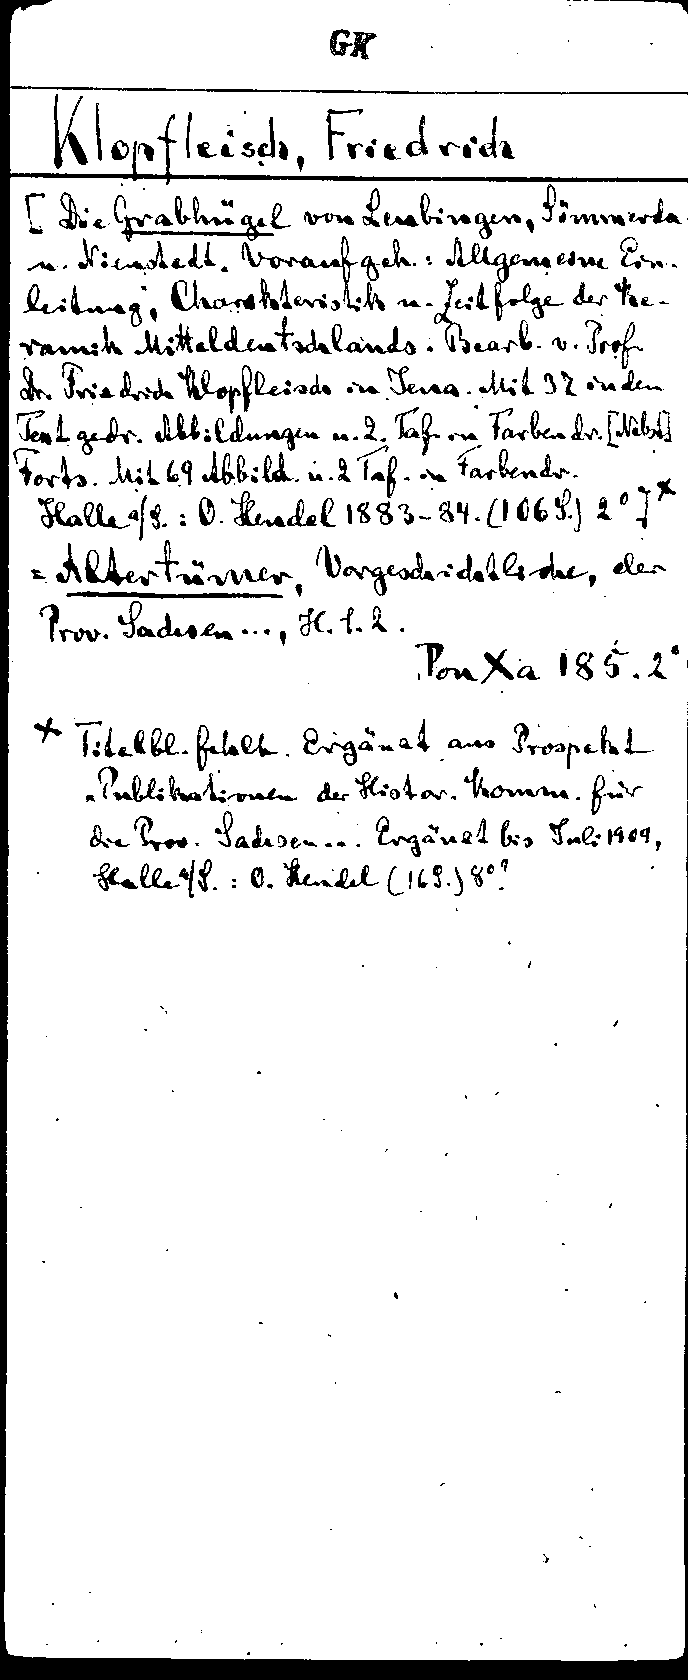 GK
Klopfleisch, Friedrich
[ Die Grabhügel von Leubingen, Sömmerda
u. Nienstedt. Voraufgeh.: Allgemeine Ein-
leitung, Charakteristik u. Zeitfolge der Ke-
ramik Mitteldeutschlands. Bearb. v. Prof.
Dr. Friedrich Klopfleisch in Jena. Mit 37 in den
Text gedr. Abbildungen u. 2. Taf. in Farbendr. [Nebst]
Forts. Mit 69 Abbild. u. 2 Taf. in Farbendr.
Halle a/S. : O. Hendel 1883-84. (106 S.) 2° ]*
= Altertümer, Vorgeschichtliche, der
Prov. Sachsen ..., H. 1. 2.
Pon Xa 185. 2°
* Titelbl. fehlt. Ergänzt aus Prospekt
"Publikationen der Histor. Komm. für
die Prov. Sachsen ... Ergänzt bis Juli 1909,
Halle a/S. : O. Hendel (16 S.) 8°"